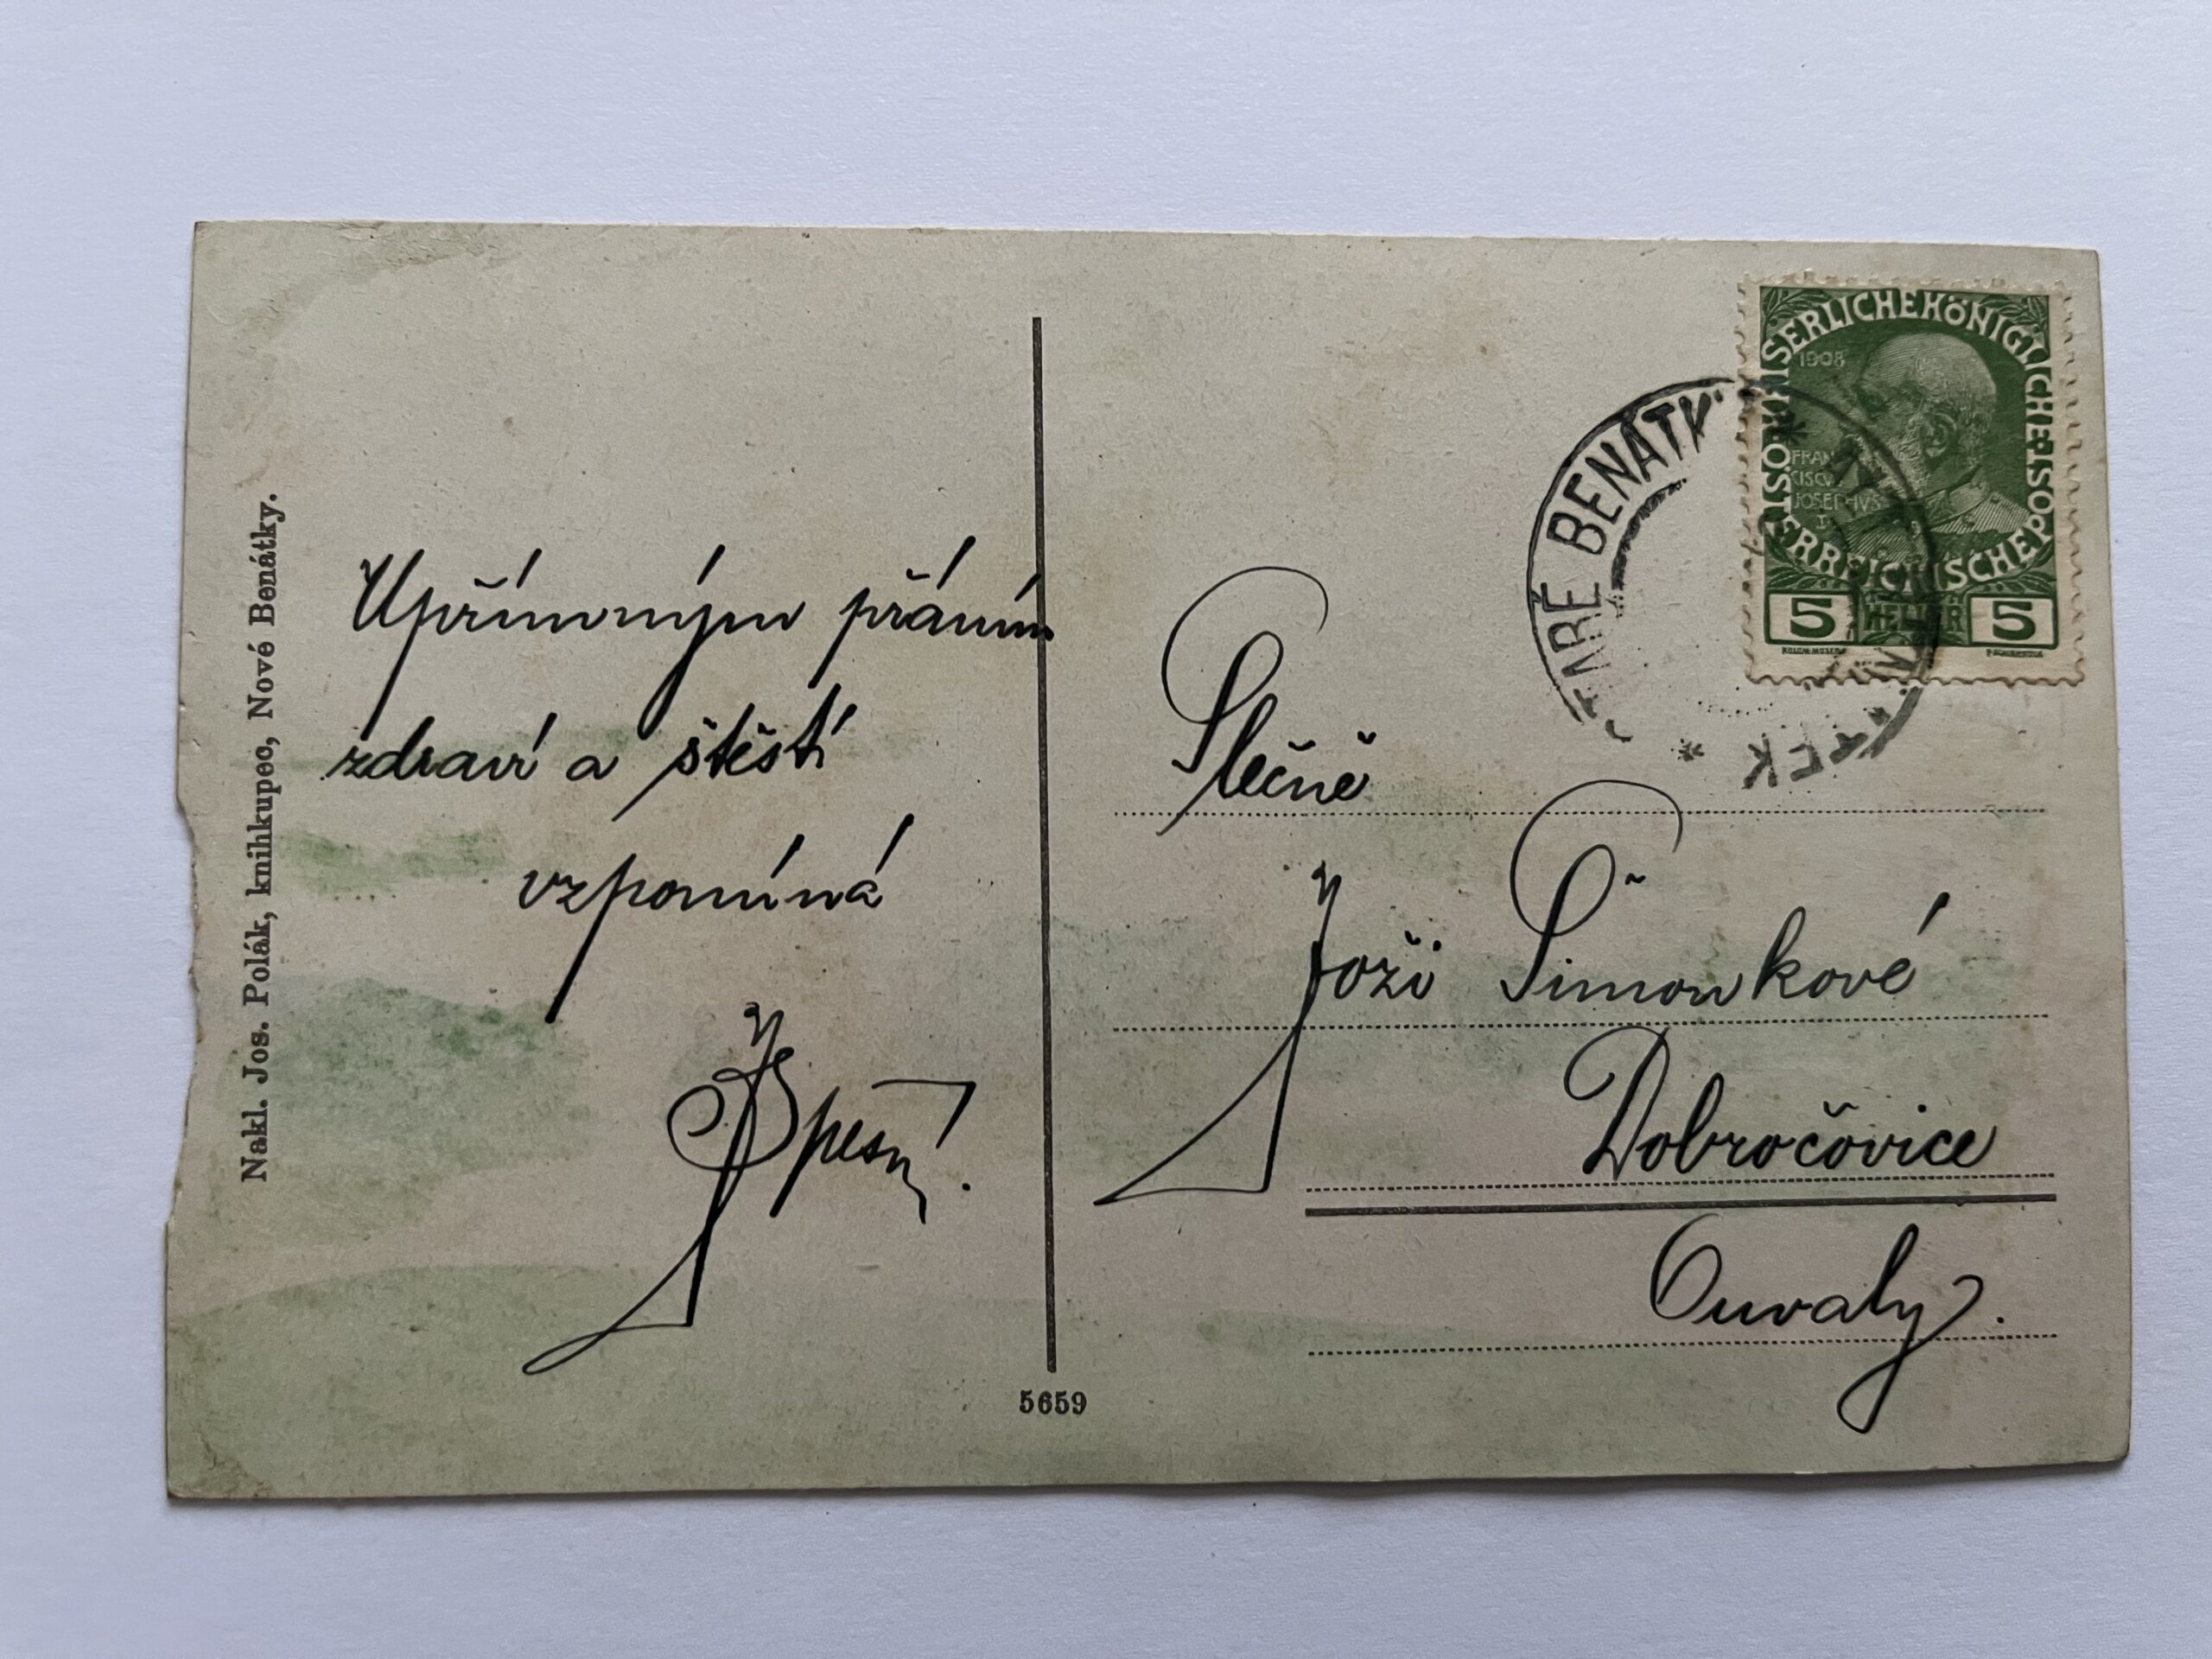 Nakl. Jos. Polák, knihkupec, Nové Benátky.
Upřímným přáním
zdraví a štěstí
vzpomíná
5659
KAISERLICHE KÖNIGLICHE POST
ÖSTERREICHISCHE
1908
FRAN
CISCVS
JOSEPHVS
I
5 HELLER 5
STARÉ BENÁTK
Slečně
Joži Šimonkové
Dobročovice
Ouvaly.